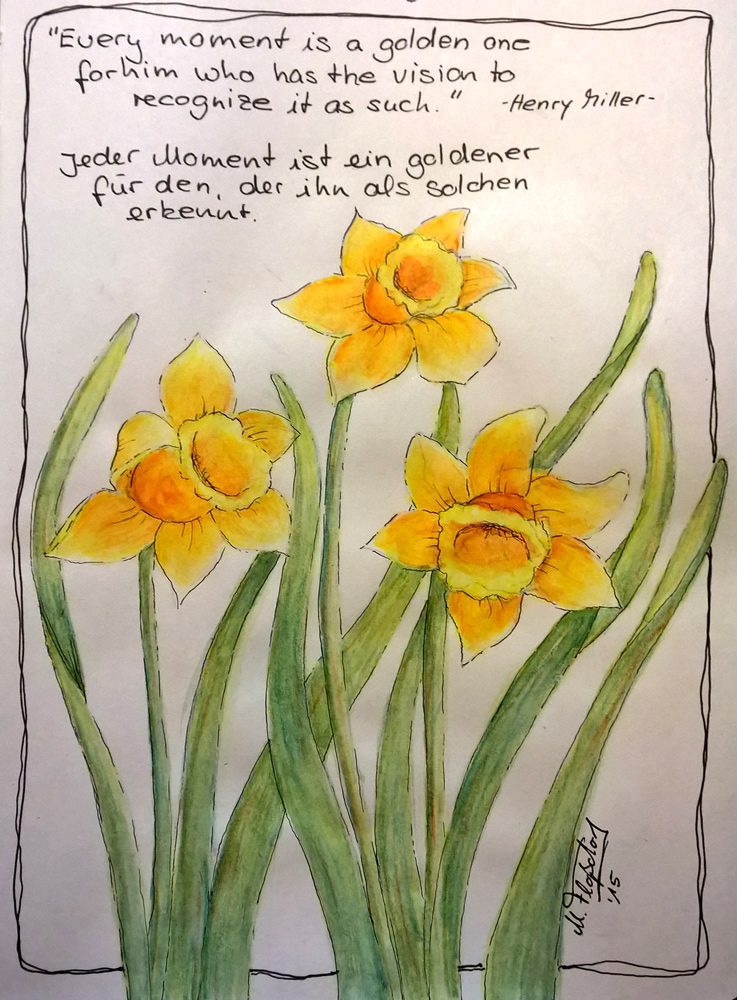 "Every moment is a golden one
for him who has the vision to
recognize it as such." -Henry Miller-
Jeder Moment ist ein goldener
für den, der ihn als solchen
erkennt.
M.
'15